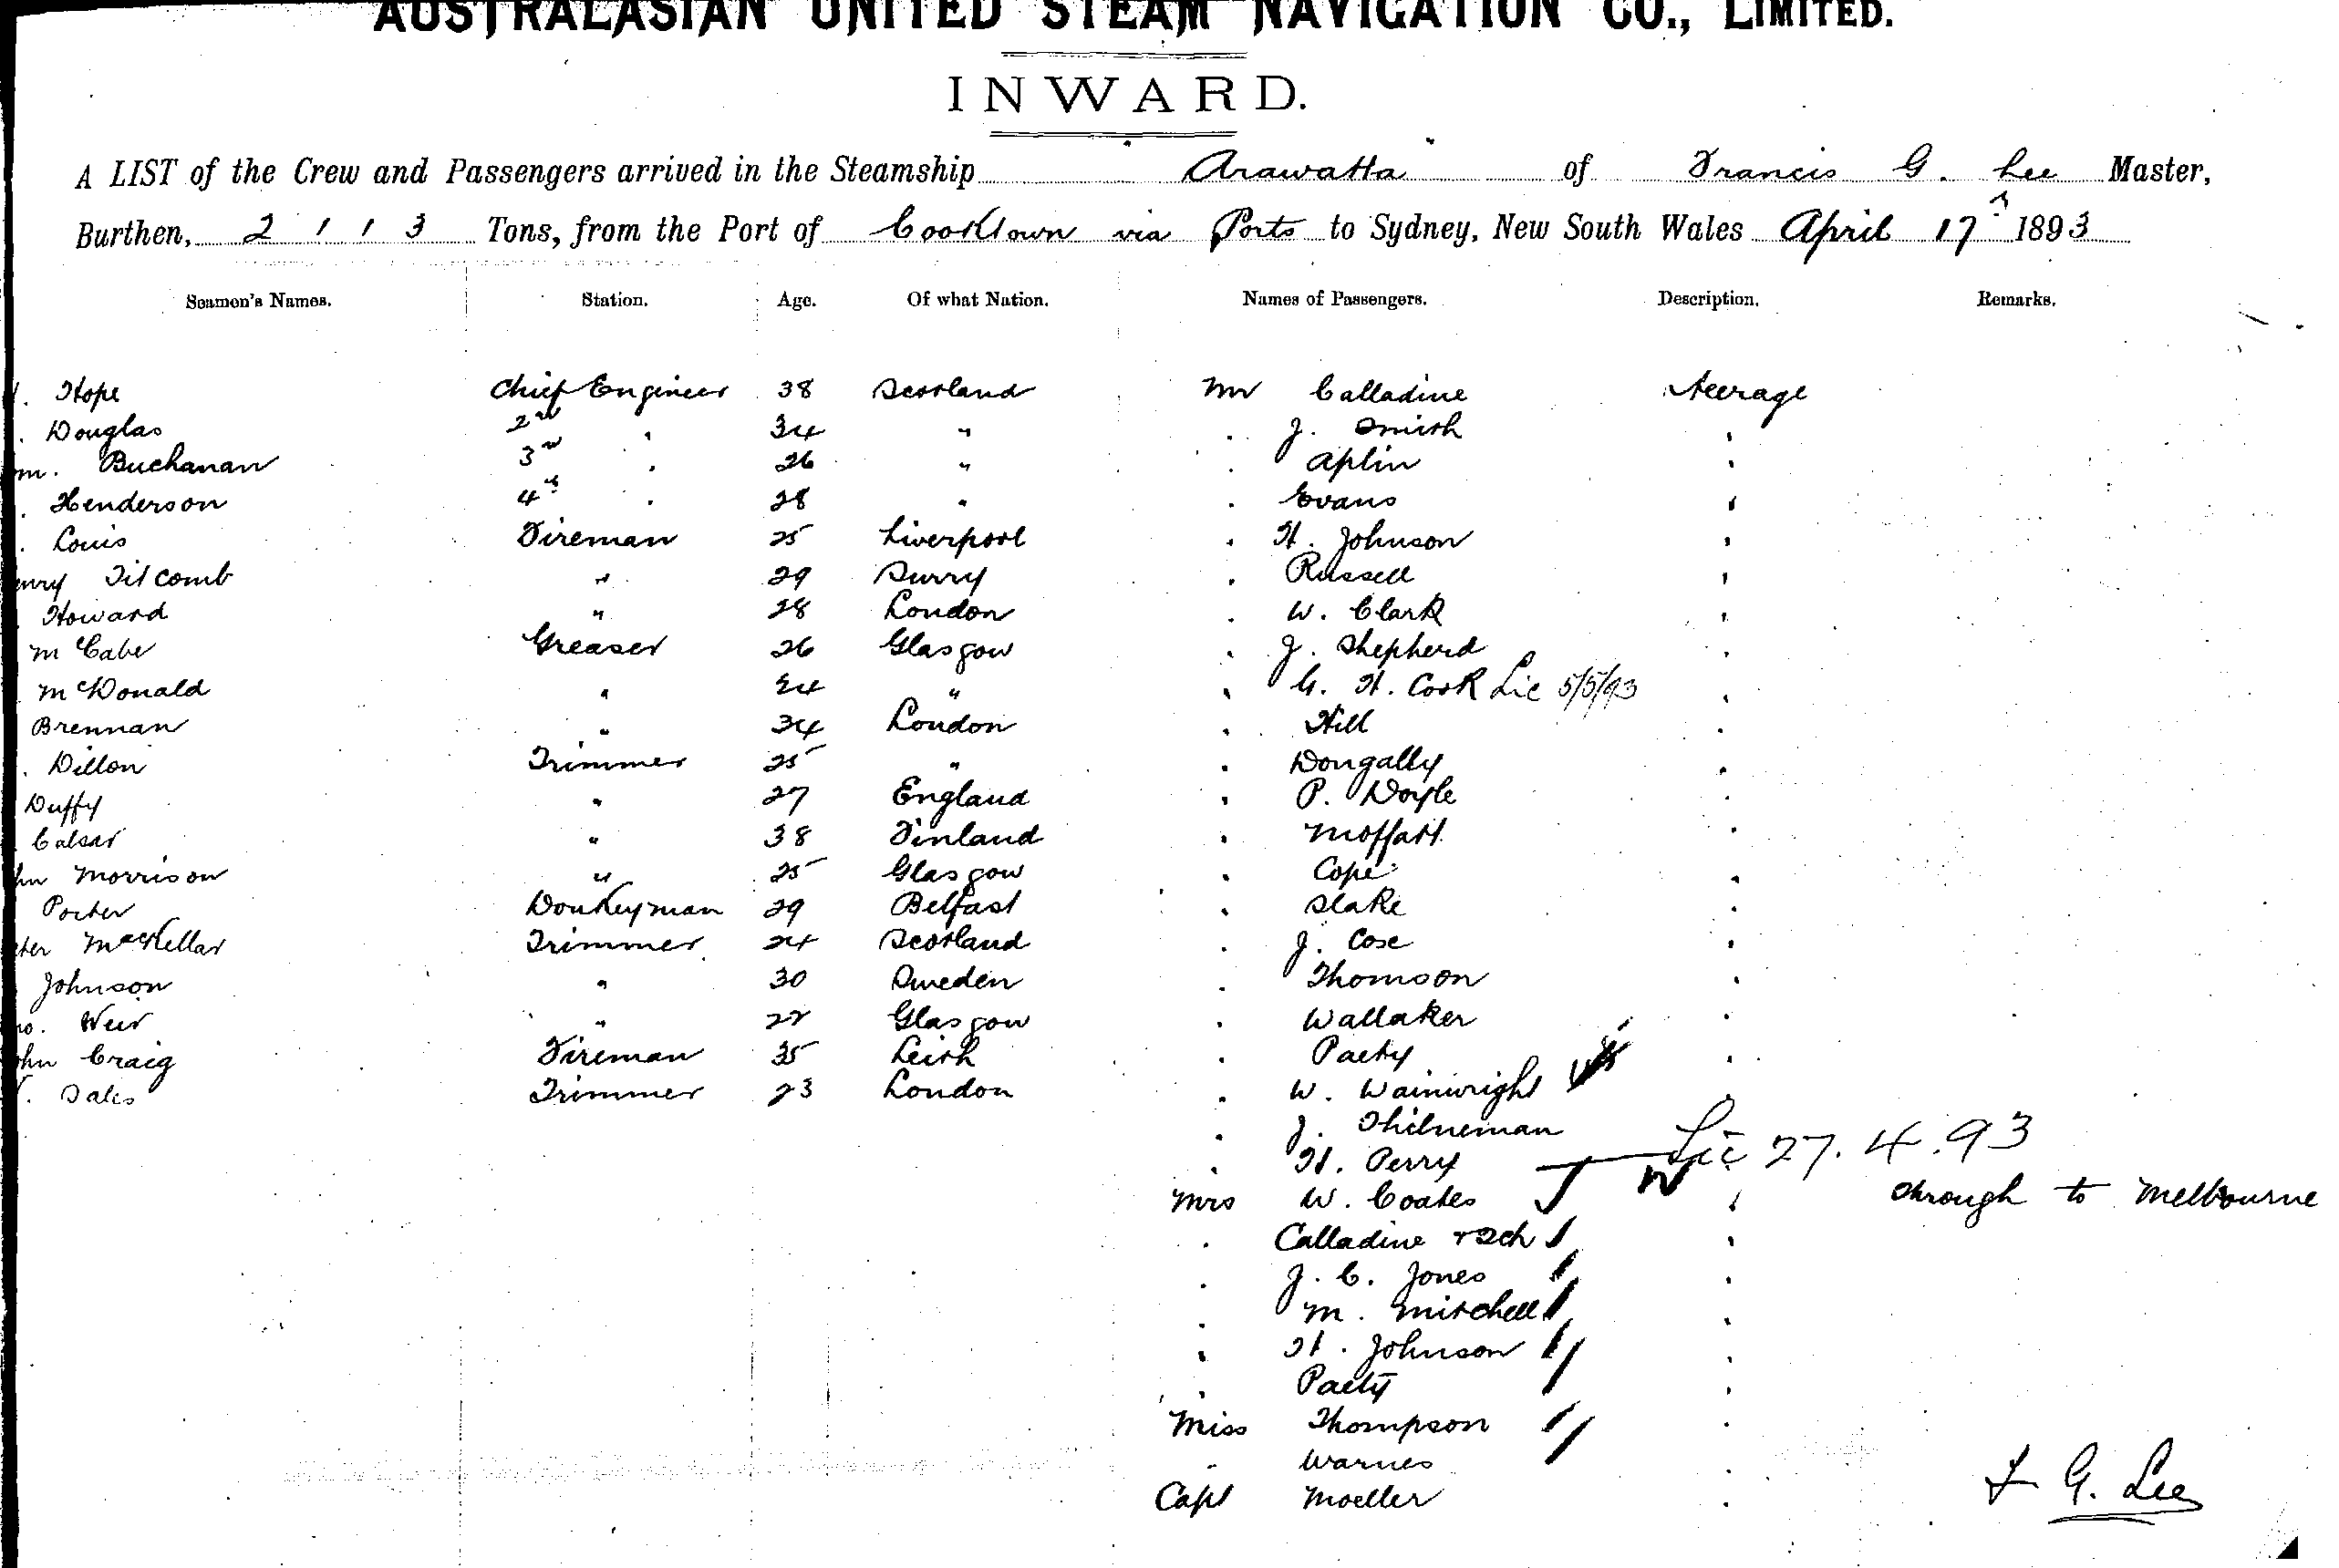 AUSTRALASIAN UNITED STEAM NAVIGATION CO., LIMITED.
INWARD.
A LIST of the Crew and Passengers arrived in the Steamship Arawatta of Francis G. Lee Master,
Burthen, 2113 Tons, from the Port of Cooktown via Ports to Sydney, New South Wales April 17th 1893
Seamen's Names. Station. Age. Of what Nation. Names of Passengers. Description. Remarks.
Hope Chief Engineer 38 Scotland Mr Calladine Steerage
Douglas 2nd " 34 " " J. Smith "
m. Buchanan 3rd " 26 " " Aplin "
Henderson 4th " 28 " " Evans "
Louis Fireman 25 Liverpool " H. Johnson "
enry Titcomb " 29 Surry " Russell "
Howard " 28 London " W. Clark "
McCabe Greaser 26 Glasgow " J. Shepherd "
McDonald " 24 " " G. H. Cook Lic 5/5/93 "
Brennan " 34 London " Hill "
Dillon Trimmer 25 " " Dongally "
Duffy " 27 England " P. Doyle "
" 38 Finland " Moffatt "
hn Morrison " 25 Glasgow " Cope "
Porter Donkeyman 29 Belfast " Slake "
ter MacKellar Trimmer 24 Scotland " J. Cose "
Johnson " 30 Sweden " Thomson "
no. Weir " 22 Glasgow " Wallaker "
ohn Craig Fireman 35 Leith " Paety "
Dales Trimmer 23 London " W. Wainwright
" J. Thilneman
" H. Perry Lic 27.4.93
Mrs W. Coates " through to Melbourne
" Calladine + 2ch "
" J. C. Jones "
" M. Mitchell "
" H. Johnson "
" Paety "
Miss Thompson "
" Warnes "
Capt Moeller "
F G. Lee